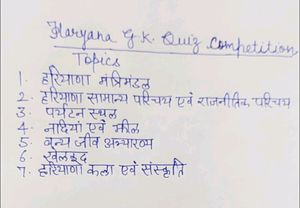 Haryana G.K. Quiz Competition
Topics
1. हरियाणा मंत्रिमंडल
2. हरियाणा सामान्य परिचय एवं राजनीतिक परिचय
3 पर्यटन स्थल
4. नदियां एवं झील
5. वन्य जीव अभ्यारण्य
6. खेलकूद
7. हरियाणा कला एवं संस्कृति